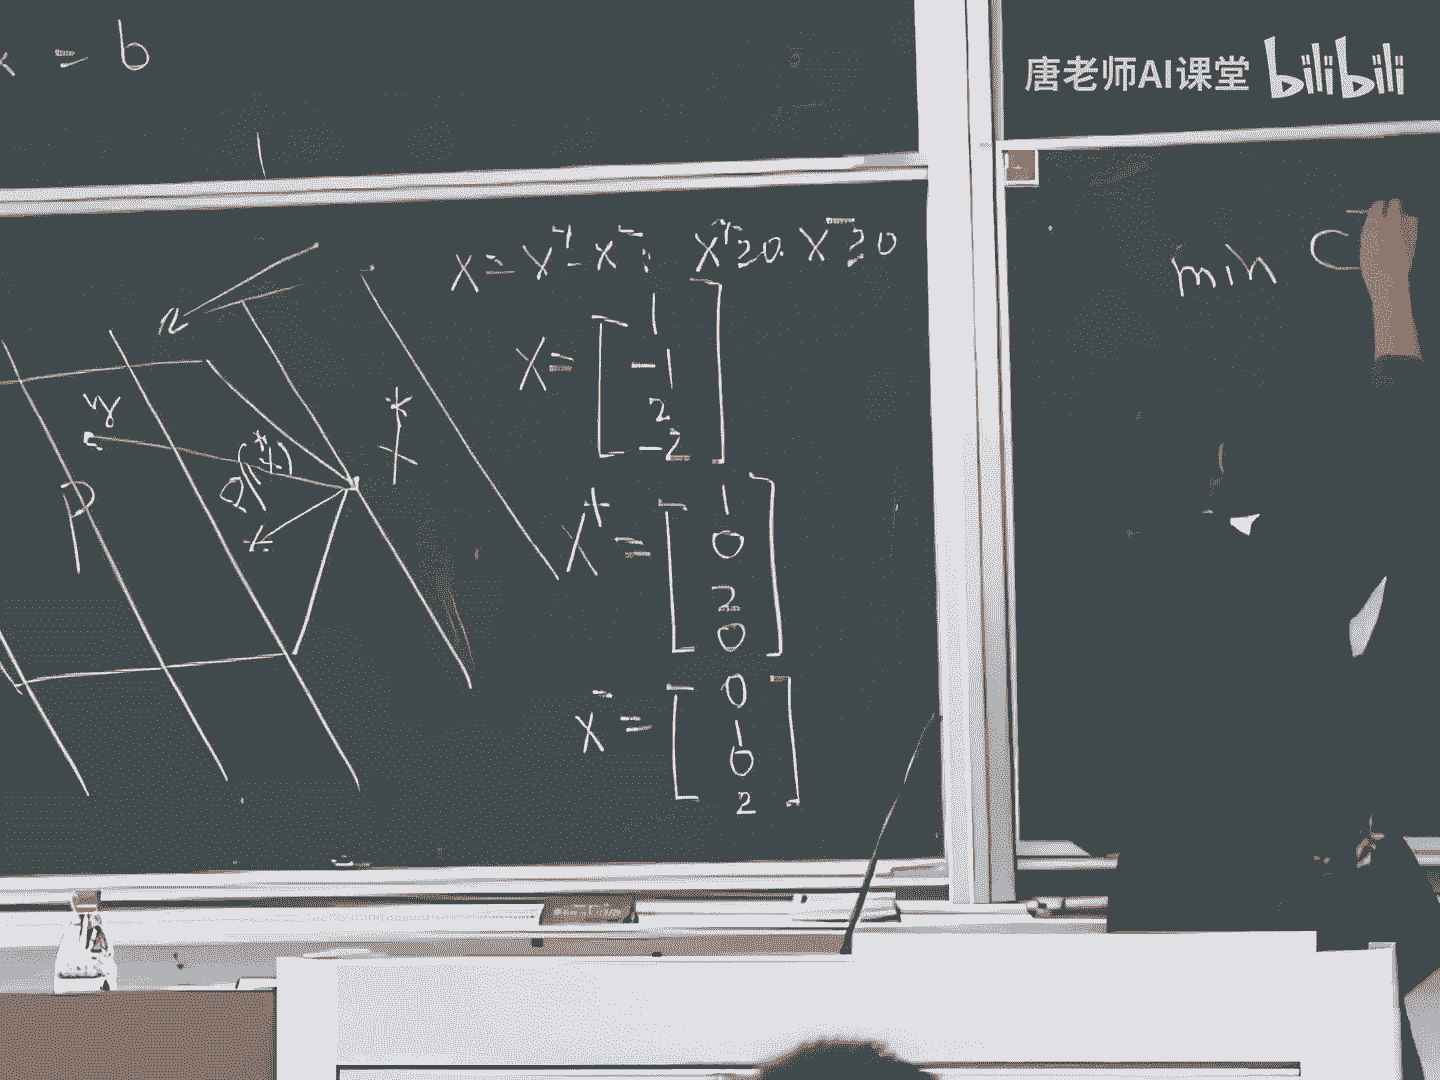 x = b
唐老师AI课堂 bilibili
X = X⁺ - X⁻, X⁺≥0. X⁻≥0
X = [1 -1 2 -2]
y
X*
P
X⁺ = [1 0 2 0]
X⁻ = [0 1 0 2]
min C